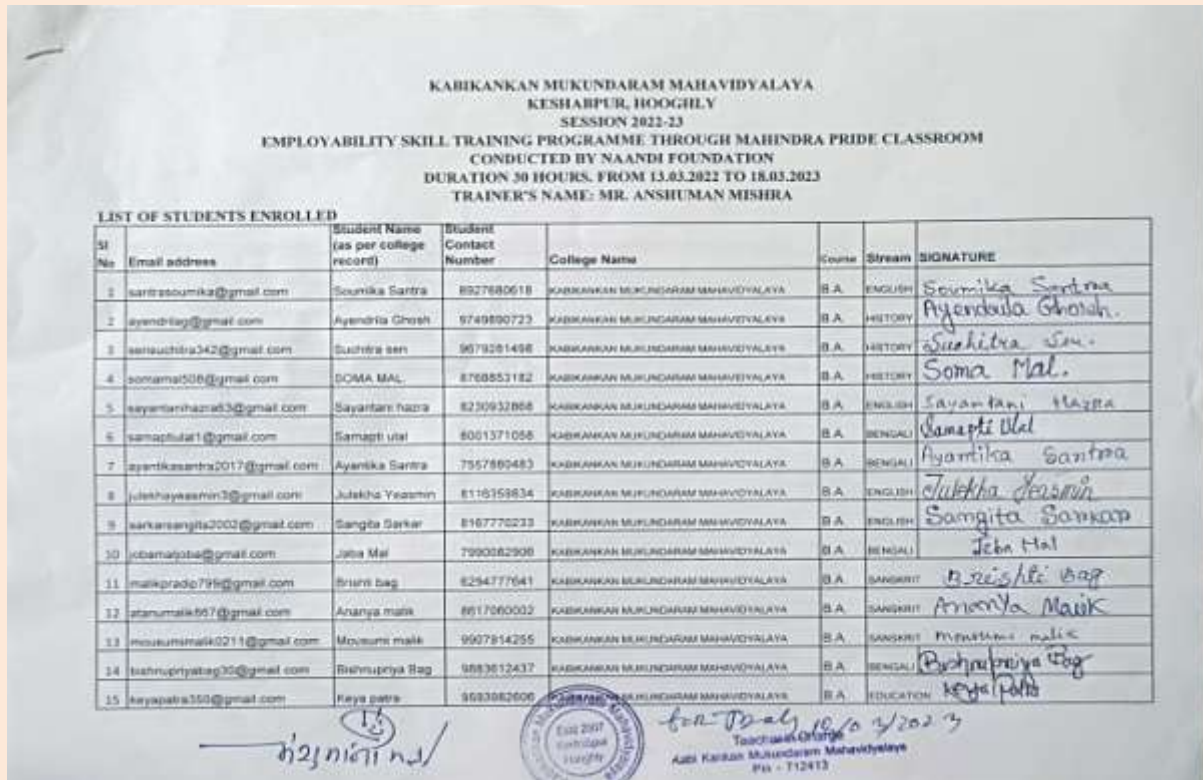 KABIKANKAN MUKUNDARAM MAHAVIDYALAYA
KESHABPUR, HOOGHLY
SESSION 2022-23
EMPLOYABILITY SKILL TRAINING PROGRAMME THROUGH MAHINDRA PRIDE CLASSROOM
CONDUCTED BY NAANDI FOUNDATION
DURATION 30 HOURS. FROM 13.03.2022 TO 18.03.2023
TRAINER'S NAME: MR. ANSHUMAN MISHRA
LIST OF STUDENTS ENROLLED
Sl No Email address Student Name (as per college record) Student Contact Number College Name Course Stream SIGNATURE
1 santrasoumika@gmail.com Soumika Santra 8927680618 KABIKANKAN MUKUNDARAM MAHAVIDYALAYA B.A. ENGLISH Soumika Santra
2 ayendrilag@gmail.com Ayendrila Ghosh 9749890723 KABIKANKAN MUKUNDARAM MAHAVIDYALAYA B.A. HISTORY Ghosh.
3 sensuchitra342@gmail.com Suchitra sen 9679281498 KABIKANKAN MUKUNDARAM MAHAVIDYALAYA B.A. HISTORY Suchitra Sen.
4 somamal508@gmail.com SOMA MAL 8768853182 KABIKANKAN MUKUNDARAM MAHAVIDYALAYA B.A. HISTORY Soma Mal.
5 sayantanihazra63@gmail.com Sayantani hazra 8230932868 KABIKANKAN MUKUNDARAM MAHAVIDYALAYA B.A. ENGLISH Sayantani Hazra
6 samaptiutal1@gmail.com Samapti utal KABIKANKAN MUKUNDARAM MAHAVIDYALAYA B.A. BENGALI Samapti Utal
7 ayantikasantra2017@gmail.com Ayantika Santra 7557860483 KABIKANKAN MUKUNDARAM MAHAVIDYALAYA B.A. BENGALI Ayantika Santra
8 julekhayeasmin3@gmail.com Julekha Yeasmin 8116359834 KABIKANKAN MUKUNDARAM MAHAVIDYALAYA B.A. ENGLISH Julekha Yeasmin
9 sarkarsangita2002@gmail.com Sangita Sarkar 8167770233 KABIKANKAN MUKUNDARAM MAHAVIDYALAYA B.A. ENGLISH Sangita Sarkar
10 jobamaljoba@gmail.com Jaba Mal KABIKANKAN MUKUNDARAM MAHAVIDYALAYA B.A. BENGALI Mal
11 malikpradip799@gmail.com bag 6294777641 KABIKANKAN MUKUNDARAM MAHAVIDYALAYA B.A. SANSKRIT Brishti Bag
12 atanumalik667@gmail.com Ananya malik 8617060002 KABIKANKAN MUKUNDARAM MAHAVIDYALAYA B.A. SANSKRIT Ananya Malik
13 mousumimalik0211@gmail.com Mousumi malik 9907814255 KABIKANKAN MUKUNDARAM MAHAVIDYALAYA B.A. SANSKRIT Mousumi malik
14 bishnupriyabag30@gmail.com Bishnupriya Bag 9883612437 KABIKANKAN MUKUNDARAM MAHAVIDYALAYA B.A. BENGALI Bishnupriya Bag
15 keyapatra350@gmail.com Keya patra MUKUNDARAM MAHAVIDYALAYA B.A. EDUCATION Keya Patra
Estd 2007
Hooghly
Kabi Kankan Mukundaram Mahavidyalaya
Pin - 712413